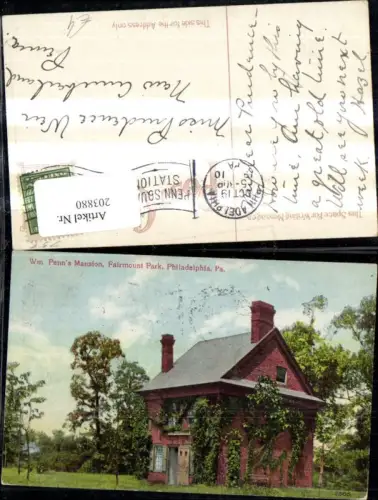 This side for the Address only
£4
Miss Prudence Weir
New Cumberland
Penna.
PENN SQUARE
STATION
PHILADELPHIA
PA.
OCT 19
10
This Space for Writing Messages
Dear Prudence-
home by this
time. Am having
a great old time.
Will see you next
week. Hazel
Artikel Nr.
203880
Wm. Penn's Mansion, Fairmount Park, Philadelphia, Pa.